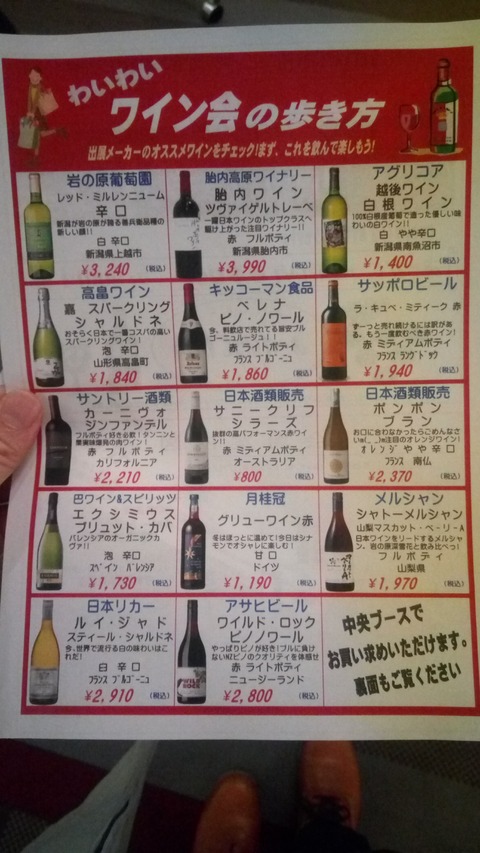 わいわい
ワイン会の歩き方
出展メーカーのオススメワインをチェック!まず、これを飲んで楽しもう!
岩の原葡萄園
レッド・ミルレンニューム
辛口
新しい顔!!
白 辛口
新潟県上越市
￥3,240 (税込)
胎内高原ワイナリー
胎内ワイン
ツヴァイゲルトレーベ
一躍日本ワインのトップクラスへ
駆け上がった注目ワイナリー!!
赤 フルボディ
新潟県胎内市
￥3,990 (税込)
アグリコア
越後ワイン
白根ワイン
100%白根産葡萄で造った優しい味
わいの白ワイン!!
白 やや辛口
新潟県南魚沼市
￥1,400 (税込)
高畠ワイン
嘉 スパークリング
シャルドネ
おそらく日本で一番コスパの高い
スパークリングワイン!
泡 辛口
山形県高畠町
￥1,840 (税込)
キッコーマン食品
ベレナ
ピノ・ノワール
今、料飲店で売れてる旨安ブル
ゴーニュルージュ!!
赤 ライトボディ
フランス ブルゴーニュ
￥1,860 (税込)
サッポロビール
ラ・キュベ・ミティーク 赤
ずーっと売れ続けるには訳があ
る。もう一度飲むべき赤ワイン!
赤 ミディアムボディ
フランス ラングドック
￥1,940 (税込)
サントリー酒類
カーニヴォ
ジンファンデル
フルボディ好き必飲!タンニンと
ワイン!
赤 フルボディ
カリフォルニア
￥2,210 (税込)
日本酒類販売
サニークリフ
シラーズ
抜群の高パフォーマンス赤ワイ
ン!!
赤 ミディアムボディ
オーストラリア
￥800 (税込)
日本酒類販売
ボンボン
ブラン
お口に合わなかったらごめんなさ
いm(_ _)m注目のオレンジワイン!
オレンジ やや辛口
フランス 南仏
￥2,370 (税込)
巴ワイン&スピリッツ
エクシミウス
ブリュット・カバ
バレンシアのオーガニックカ
ヴァ!!
泡 辛口
スペイン バレンシア
￥1,730 (税込)
月桂冠
グリューワイン赤
冬はほっとに温めて!今日はシナ
モンでオシャレに楽しむ!
甘口
ドイツ
￥1,190 (税込)
メルシャン
シャトーメルシャン
山梨マスカット・ベーリーA
日本ワインをリードするメルシャ
ン。岩の原深雪花と飲み比べっ!
フルボディ
山梨県
￥1,970 (税込)
日本リカー
ルイ・ジャド
スティール・シャルドネ
今、世界で流行る白の味わいはこ
れだ!
白 辛口
フランス ブルゴーニュ
￥2,910 (税込)
アサヒビール
ワイルド・ロック
ピノノワール
やっぱりピノが好き!ブルに負け
ないNZピノのクオリティを体感せ
赤 ライトボディ
ニュージーランド
￥2,800 (税込)
中央ブースで
お買い求めいただけます。
裏面もご覧ください